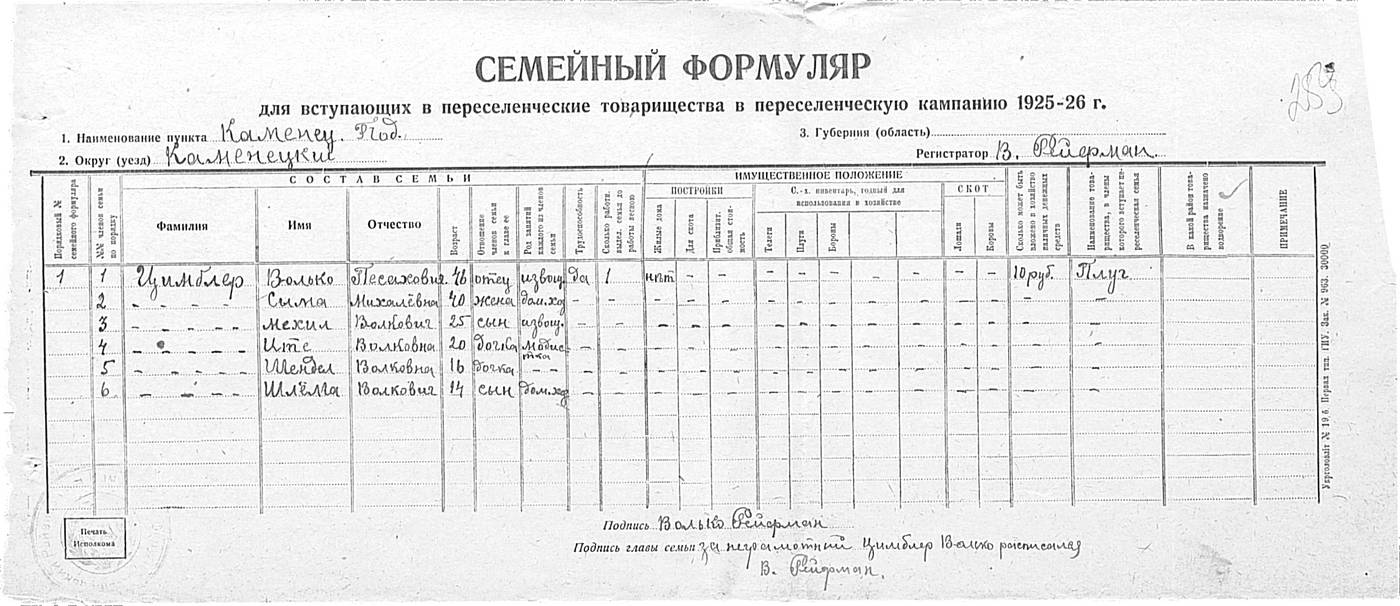 СЕМЕЙНЫЙ ФОРМУЛЯР
для вступающих в переселенческие товарищества в переселенческую кампанию 1925-26 г.
1. Наименование пункта Каменец. Под. 3. Губерния (область)
2. Округ (уезд) Каменецкий Регистратор В. Рейфман.
СОСТАВ СЕМЬИ ИМУЩЕСТВЕННОЕ ПОЛОЖЕНИЕ
ПОСТРОЙКИ С.-х. инвентарь, годный для использования в хозяйстве СКОТ
Порядковый № семейного формуляра №№ членов семьи по порядку Фамилия Имя Отчество Возраст Отношение членов семьи к главе ее Род занятий каждого из членов семьи Трудоспособность Сколько работн. выдел. семья до работы весною Жилые дома Для скота Приблизит. общая стоимость Телеги Плуги Бороны Лошади Коровы Сколько может быть вложено в хозяйство наличных денежных средств Наименование товарищества, в члены которого вступает переселенческая семья В какой район товарищества назначено водворение ПРИМЕЧАНИЕ
1 1 Цимблер Волько Песахович 46 отец извощ. да 1 нет - - - - - - - - - 10 руб. Плуг
2 - - - - Сима Михалёвна 40 жена дом.хоз - - - - - - - - - - - - - -
3 - - - - - Мехил Волкович 25 сын извощ. - - - - - - - - - - - - - -
4 - - - - - Ите Волковна 20 дочка модистка - - - - - - - - - - - - - -
5 - - - - - Шендел Волковна 16 дочка - - - - - - - - - - - - - - - -
6 - - - - Шлёма Волкович 14 сын дом.хоз - - - - - - - - - - - - - -
Печать Исполкома
Подпись Волько Рейфман
Подпись главы семьи за неграмотний Цимблер Волько расписалая
В. Рейфман.
Первая тип. ГПУ. Зак. № 963. 30000